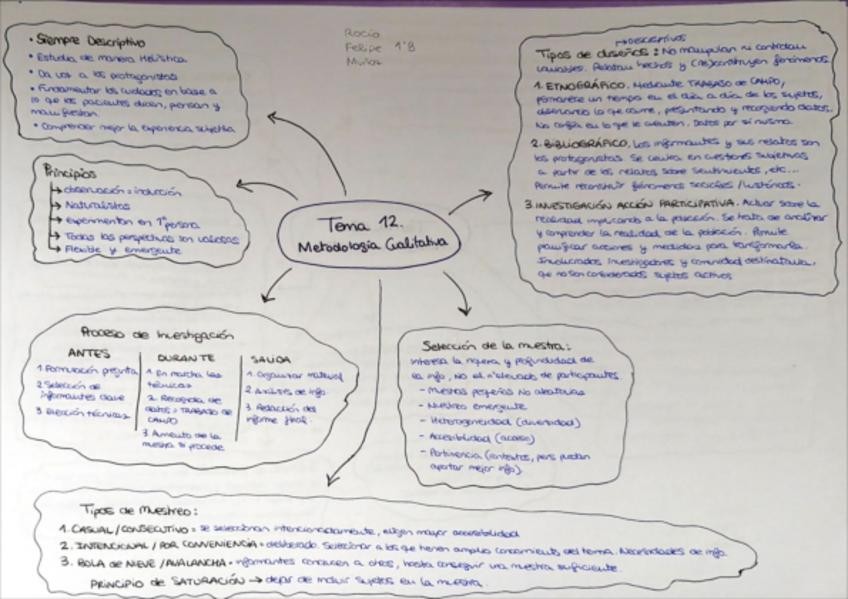 Rocío
Felipe 1ºB
Muñoz
• Siempre Descriptivo
• Estudia de manera Holística
• Da voz a los protagonistas
• Fundamentar los cuidados en base a
lo que los pacientes dicen, piensan y
manifiestan.
• Comprender mejor la experiencia subjetiva
Principios
→ observación = inducción
→ Naturalistas
→ experimentan en 1ª persona
→ Todas las perspectivas son valiosas
→ Flexible y emergente
Tema 12.
Metodología Cualitativa
→ DESCRIPTIVOS
Tipos de diseños: No manipulan ni controlan
variables. Relatan hechos y (re)construyen fenómenos.
1. ETNOGRÁFICO. Mediante TRABAJO de CAMPO,
permanece un tiempo en el día a día de los sujetos,
observando lo que ocurre, preguntando y recogiendo datos.
No confía en lo que le cuenten. Datos por sí mismo.
2. BIBLIOGRÁFICO. Los informantes y sus relatos son
los protagonistas. Se centra en cuestiones subjetivas
a partir de los relatos sobre sentimientos, etc...
Permite reconstruir fenómenos sociales / históricos.
3. INVESTIGACIÓN ACCIÓN PARTICIPATIVA. Actuar sobre la
realidad implicando a la población. Se trata de analizar
y comprender la realidad de la población. Permite
planificar acciones y medidas para transformarla.
Involucrados investigadores y comunidad destinataria,
que no son considerados sujetos activos
Proceso de Investigación
ANTES
1. Formulación pregunta
2. Selección de
informantes clave
3. Elección técnicas
DURANTE
1. En marcha las
técnicas
2. Recogida de
datos = TRABAJO DE
CAMPO
3. Aumento de la
muestra si procede
SALIDA
1. Organizar material
2. Análisis de info.
3. Redacción del
informe final.
Selección de la muestra:
Interesa la riqueza y profundidad de
la info, no el nº elevado de participantes.
- Muestras pequeñas No aleatorias
- Muestreo emergente
- Heterogeneidad (diversidad)
- Accesibilidad (acceso)
- Pertinencia (contextos, pers puedan
aportar mejor info)
Tipos de Muestreo:
1. CASUAL / CONSECUTIVO = se seleccionan intencionadamente, eligen mayor accesibilidad
2. INTENCIONAL / POR CONVENIENCIA = deliberado. Seleccionar a los que tienen amplio conocimiento del tema. Necesidades de info.
3. BOLA de NIEVE / AVALANCHA = informantes conocen a otros, hasta conseguir una muestra suficiente.
PRINCIPIO de SATURACIÓN → dejar de incluir sujetos en la muestra.